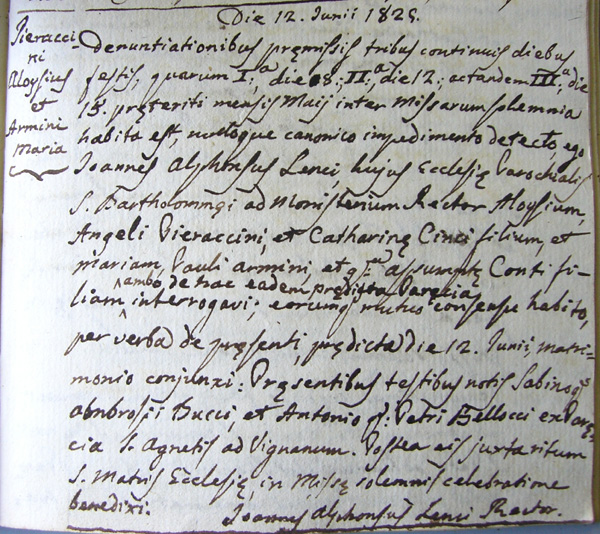 Die 12. Junii 1825.
Pieracci-
ni
Aloysius
et
Armini
Maria
Denuntiationibus pręmissis tribus continuis diebus
festis, quarum I.ª die 8.; II.ª, die 12.; ac tandem III.ª, die
15. pręteriti mensis Maij inter Missarum solemnia
habita est, nulloque canonico impedimento detecto, ego
Joannes Alphonsus Lenci hujus Ecclesię Parochialis
S. Bartholomęi ad Monisterium Rector Aloysium,
Angeli Pieraccini, et Catharinę Cinci filium, et
Mariam, Pauli Armini, et Assumptę Conti fi-
ambo de hac eadem prędicta Parecia
liam interrogavi: eorumq mutuo consensu habito,
per verba de pręsenti, prędicta die 12. Junii, matri-
monio conjunxi: Pręsentibus testibus notis Sabino q.
Ambrosii Bucci, et Antonio q. Petri Bellocci ex Parę-
cia S. Agnatis ad Vignanum. Postea eis juxta ritum
S. Matris Ecclesię, in Missę solemnis celebratione
benedixi.
Joannes Alphonsus Lenci Rector.